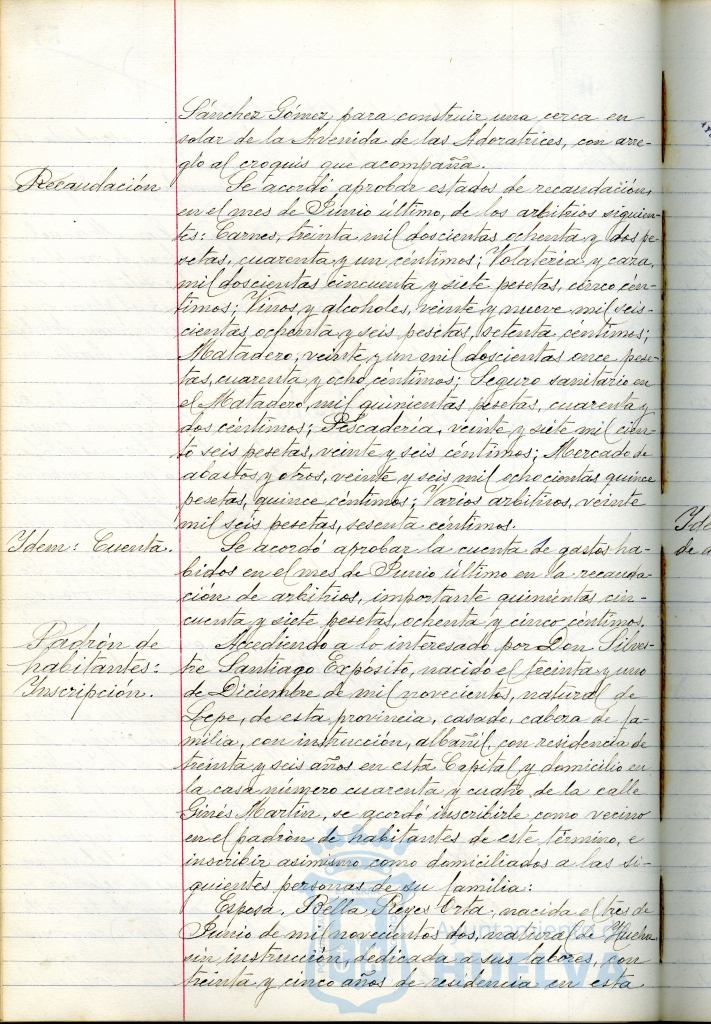 Sánchez Gómez para construir una cerca en
solar de la Avenida de las Adoratrices, con arre-
glo al croquis que acompaña.
Recaudación
Se acordó aprobar estados de recaudación,
en el mes de Junio último, de los arbitrios siguien-
tes: Carnes, treinta mil doscientas ochenta y dos pe-
setas, cuarenta y un céntimos; Volatería y caza,
mil doscientas cincuenta y siete pesetas, cinco cén-
timos; Vinos y alcoholes, veinte y nueve mil seis-
cientas ochenta y seis pesetas, setenta céntimos;
Matadero, veinte y un mil doscientas once pese-
tas, cuarenta y ocho céntimos; Seguro sanitario en
el Matadero, mil quinientas pesetas, cuarenta y
dos céntimos; Pescadería, veinte y siete mil cien-
to seis pesetas, veinte y seis céntimos; Mercado de
abastos y otros, veinte y seis mil ochocientas quince
pesetas, quince céntimos; Varios arbitrios, veinte
mil seis pesetas, sesenta céntimos.
Idem: Cuenta.
Se acordó aprobar la cuenta de gastos ha-
bidos en el mes de Junio último en la recauda-
ción de arbitrios, importante quinientas cin-
cuenta y siete pesetas, ochenta y cinco céntimos.
Padrón de
habitantes:
Inscripción.
Accediendo a lo interesado por Don Silves-
tre Santiago Expósito, nacido el treinta y uno
de Diciembre de mil novecientos, natural de
Lepe, de esta provincia, casado, cabeza de fa-
milia, con instrucción, albañil, con residencia de
treinta y seis años en esta Capital y domicilio en
la casa número cuarenta y cuatro de la calle
Ginés Martín, se acordó inscribirle como vecino
en el padrón de habitantes de este término, e
inscribir asimismo como domiciliados a las si-
guientes personas de su familia:
Esposa, Bella Reyes Orta, nacida el tres de
Junio de mil novecientos dos, natural de
sin instrucción, dedicada a sus labores, con
treinta y cinco años de residencia en esta
Ayuntamiento de
HUELVA